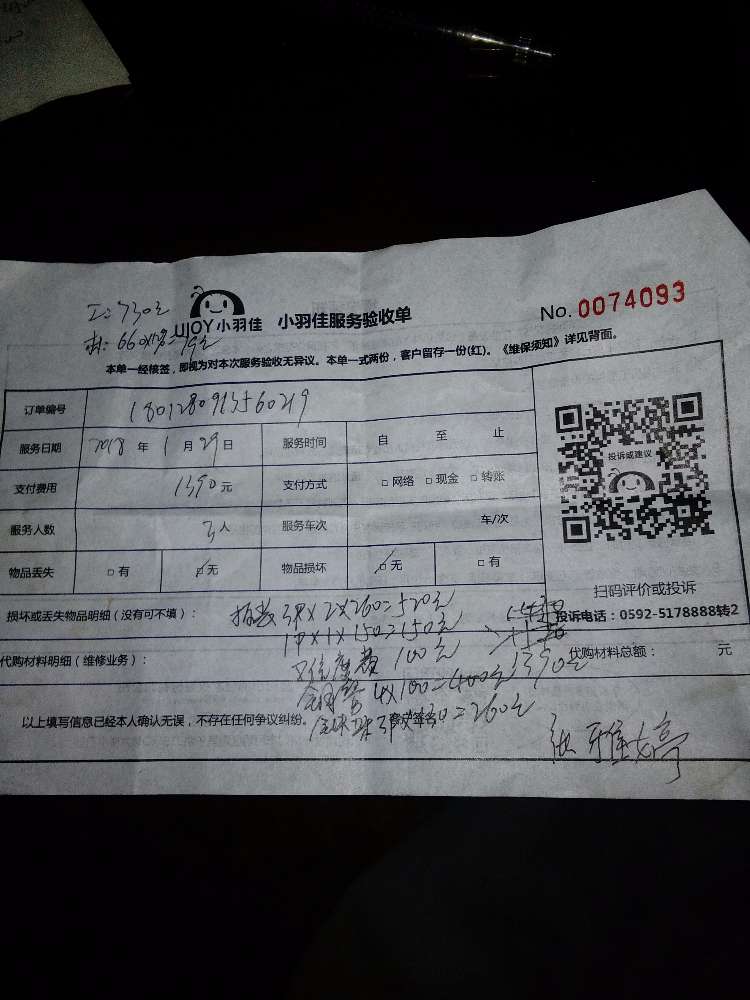 工:730元
材:660
UJOY小羽佳 小羽佳服务验收单
No. 0074093
本单一经核签,即视为对本次服务验收无异议。本单一式两份,客户留存一份(红)。《维保须知》详见背面。
订单编号 1801280913560219
服务日期 2018 年 1 月 29 日 服务时间 自 至 止
支付费用 1390 元 支付方式 □ 网络 □ 现金 □ 转账
服务人数 3 人 服务车次 车/次
物品丢失 □ 有 □ 无 物品损坏 □ 无 □ 有
投诉或建议
扫码评价或投诉
投诉电话:0592-5178888转2
损坏或丢失物品明细(没有可不填): 拆装 3P×2×260=520元
1P×1×150=150元
代购材料明细(维修业务): 100元 1390元 代购材料总额: 元
4×100=400元
以上填写信息已经本人确认无误,不存在任何争议纠纷。 =260元